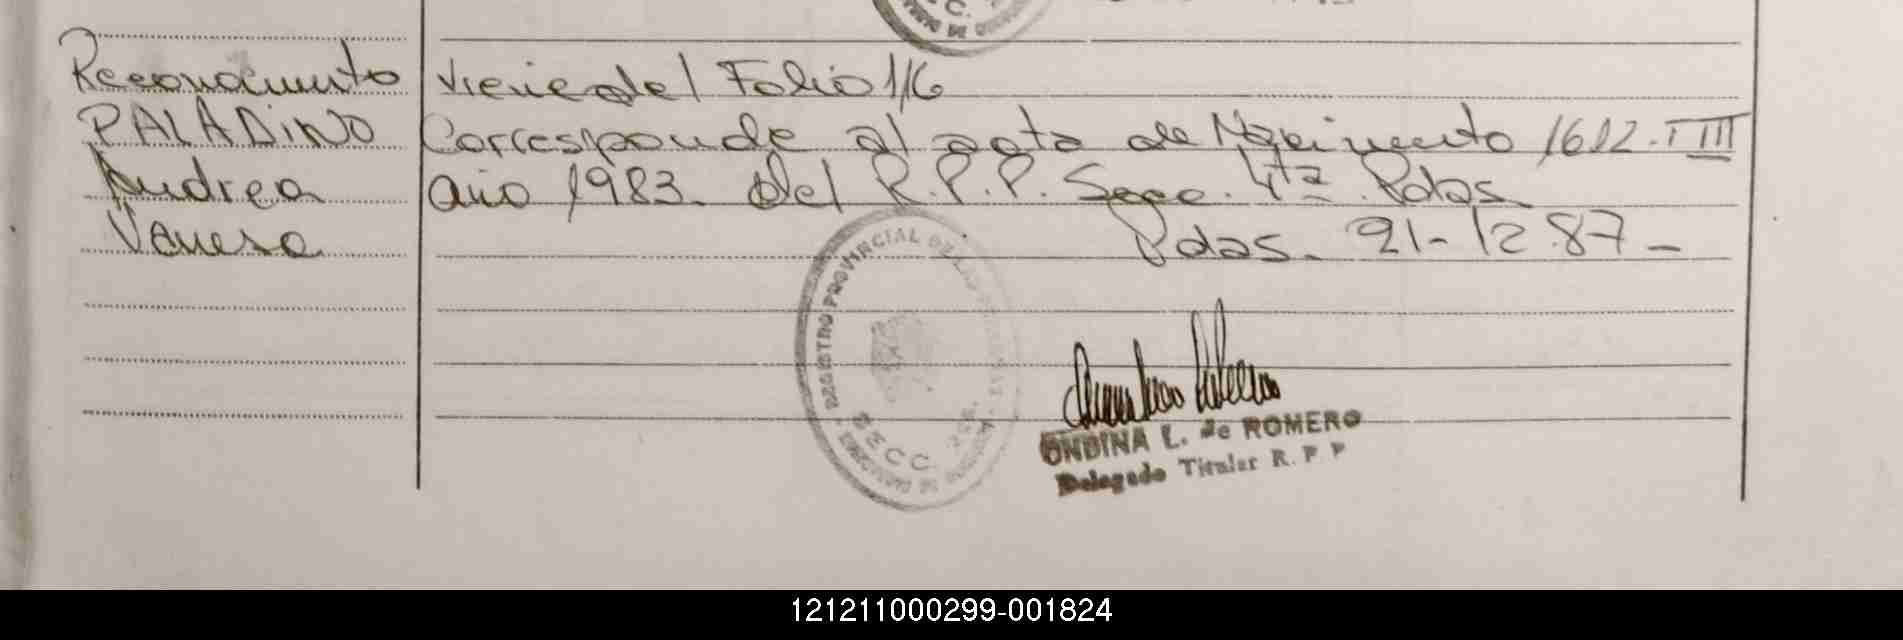 Reconocimiento
PALADINO
Andrea
Vanesa
Viene del Folio 116
Corresponde al acta de Nacimiento 1612. T III
año 1983. del R.P.P. Secc. 4ta Pdas.
Pdas. 21-12.87-
REGISTRO PROVINCIAL DE LAS PERSONAS
SECC.
ONDINA L. de ROMERO
Delegado Titular R. P. P
121211000299-001824